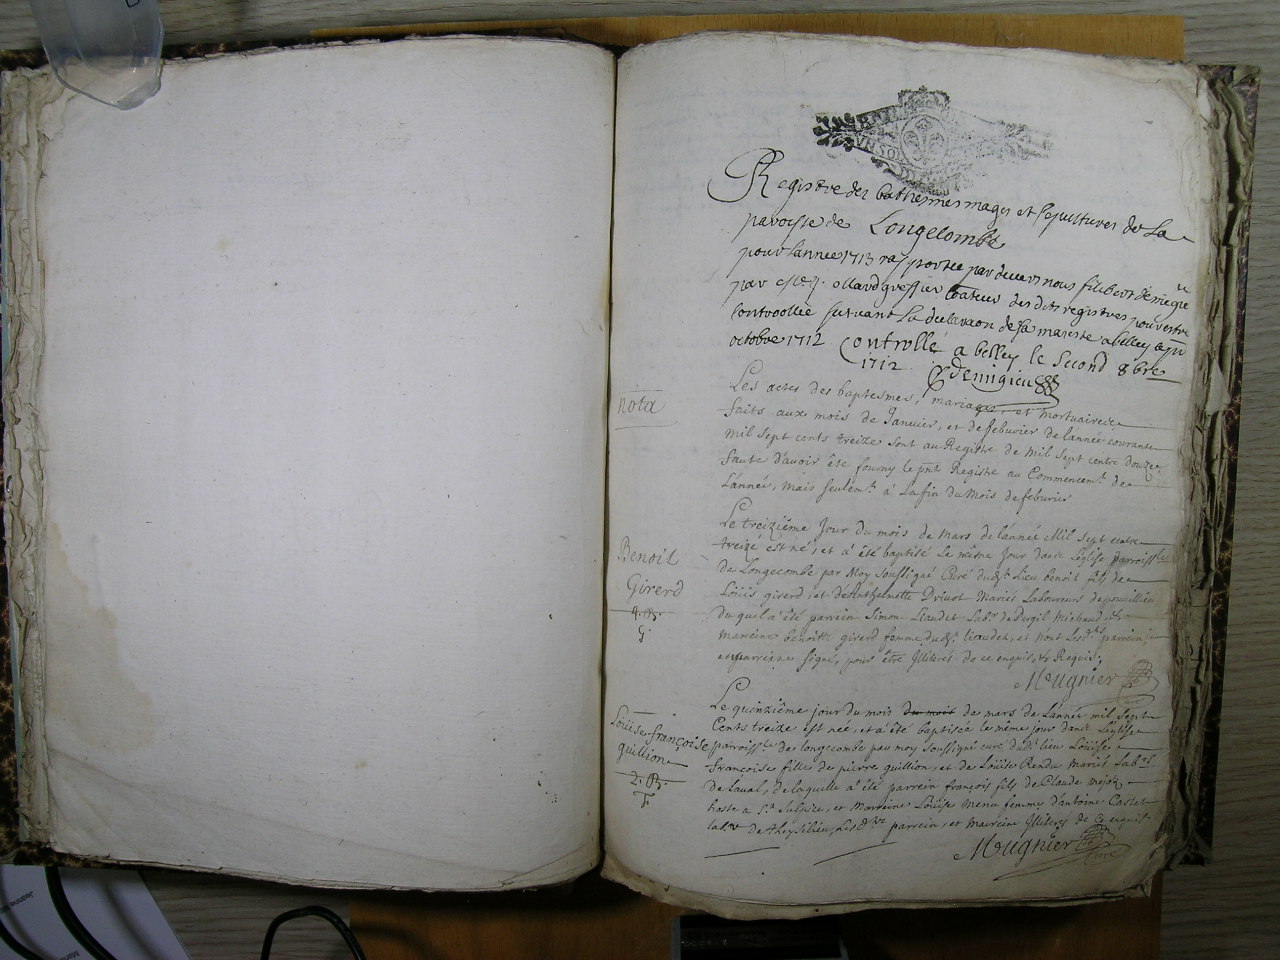 Registre des bathesmes mages et sepultures de La
paroisse de Longecombe
pour Lannee 1713 rapportee par devers nous filibert demigieu
par
Controollee suivant La declaraon de sa majeste a belley
octobre 1712 Controllé a belley le second 8bre
1712 Demigieu
nota
Les actes des baptesmes, mariages, et mortuaires
faits aux mois de Janvier, et de feburier de lannée courante
mil sept cents treize sont au Registre de mil sept cents douze
faute d'avoir été fourny le pnt Registre au Commencemt. de
Lannée, mais seulemt. à La fin du mois de feburier
Benoit
Girerd
4. B.
G.
Le treizième Jour du mois de mars de lannée Mil sept cents
treize est né, et a été baptisé le même Jour dans L'église parroisslle
de Longecombe par Moy soussigné Curé dudt. Lieu benoit fils de
Loüis girerd, et d'Anthelmette Drivet Mariés Laboureurs de
du quel a été parrein Simon Liaudet Labr. de
marreine benoitte girerd femme dudt. Liaudet, et n'ont Lesdts parrein
et marreine signé, pour être Illiterés de ce enquis, & Requis.
Mugnier
Loüise françoise
guillion
2. B.
F.
Le quinzième jour du mois du mois de mars de Lannée mil sept
Cents treize est née, et a été baptisée le même jour dans L'église
parroisslle de longecombe par moy soussigné curé dudt. lieu Loüise
francoise fille de pierre guillion, et de Loüise Rendu mariés Labrs.
de Laval, de laquelle a été parrein françois fils de Claude
hoste a St. Sulpice, et Marreine Loüise menu femme d'antoine Castel
labr. de Lesdts parrein, et marreine Illiterés de ce enquis
Mugnier
curé